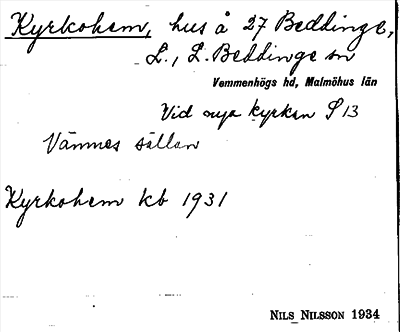 Kyrkohem, hus å 27 Beddinge,
L., L. Beddinge sn
Vemmenhögs hd, Malmöhus län
Vid nya kyrkan S 13
Vännes sällan
Kyrkohem kb 1931
NILS NILSSON 1934